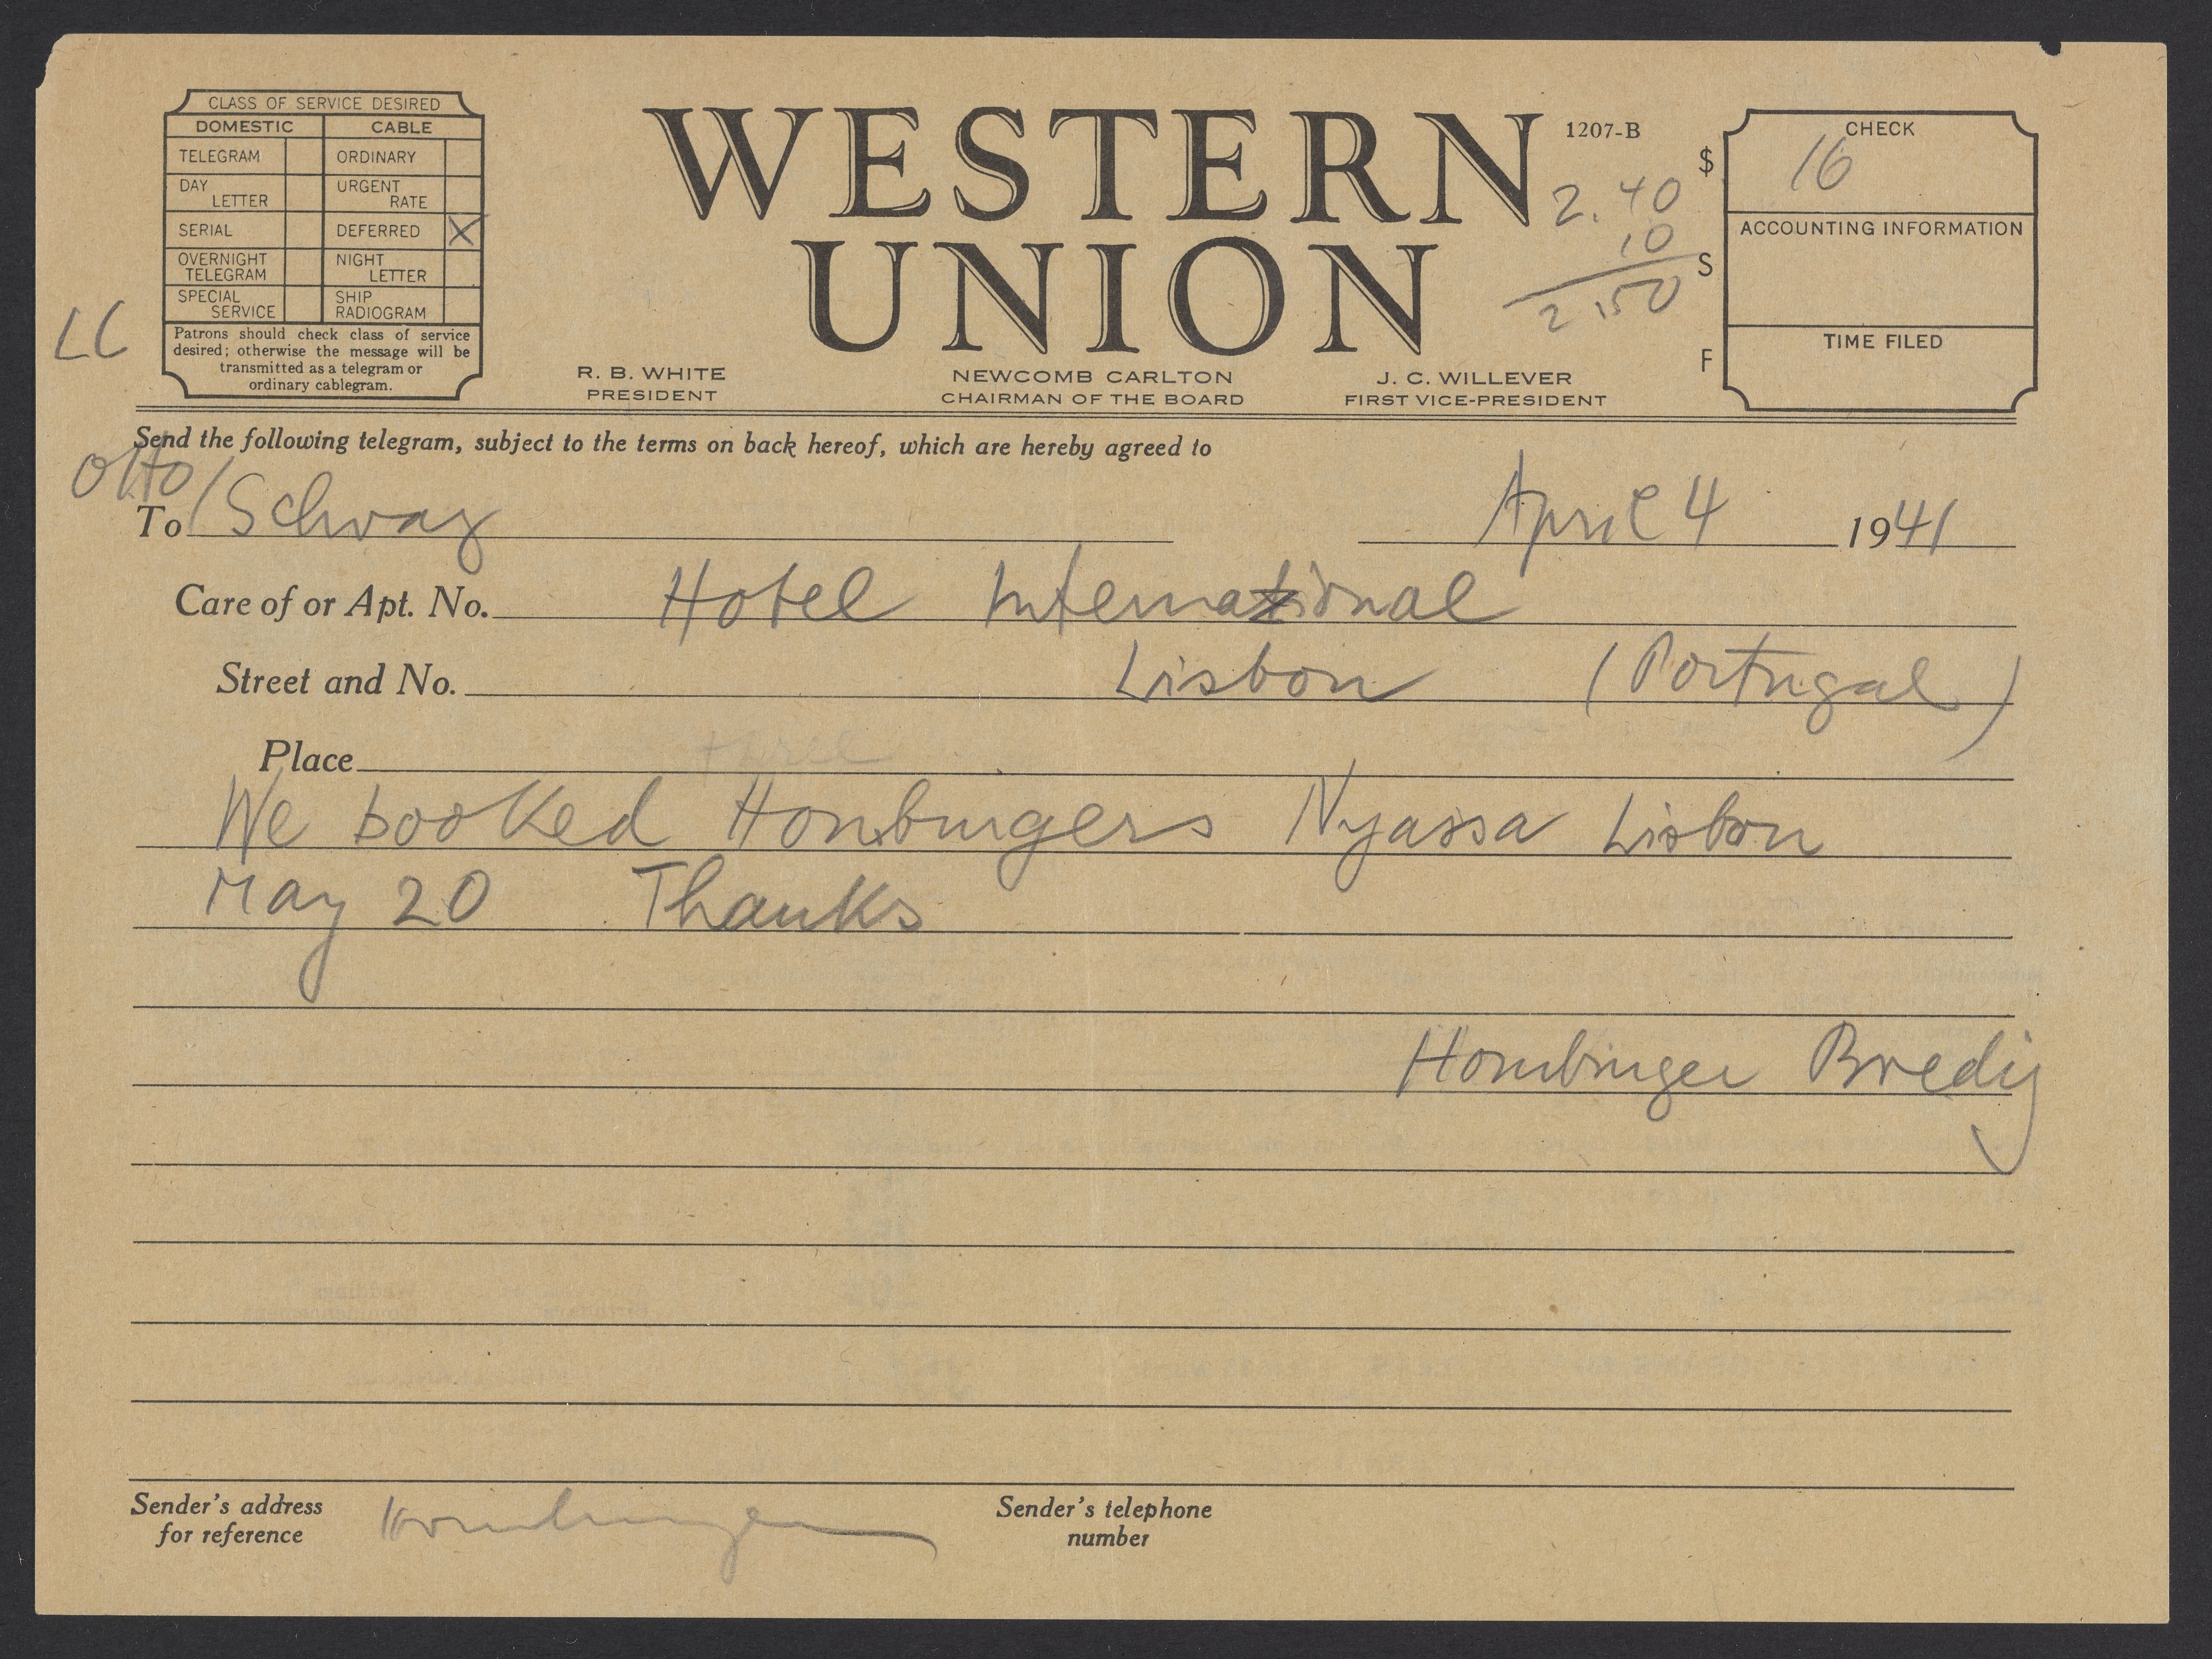 CLASS OF SERVICE DESIRED
DOMESTIC CABLE
TELEGRAM ORDINARY
DAY LETTER URGENT RATE
SERIAL DEFERRED X
OVERNIGHT TELEGRAM NIGHT LETTER
SPECIAL SERVICE SHIP RADIOGRAM
Patrons should check class of service
desired; otherwise the message will be
transmitted as a telegram or
ordinary cablegram.
LC
WESTERN
UNION
1207-B
2.40
10
2.50
$
S
F
CHECK
16
ACCOUNTING INFORMATION
TIME FILED
R. B. WHITE
PRESIDENT
NEWCOMB CARLTON
CHAIRMAN OF THE BOARD
J. C. WILLEVER
FIRST VICE-PRESIDENT
Send the following telegram, subject to the terms on back hereof, which are hereby agreed to
Otto
To Schwarz April 4 1941
Care of or Apt. No. Hotel International
Street and No. Lisbon (Portugal)
Place
We booked Homburgers Nyassa Lisbon
May 20 Thanks
Homburger Bredig
Sender's address
for reference
Homburger
Sender's telephone
number